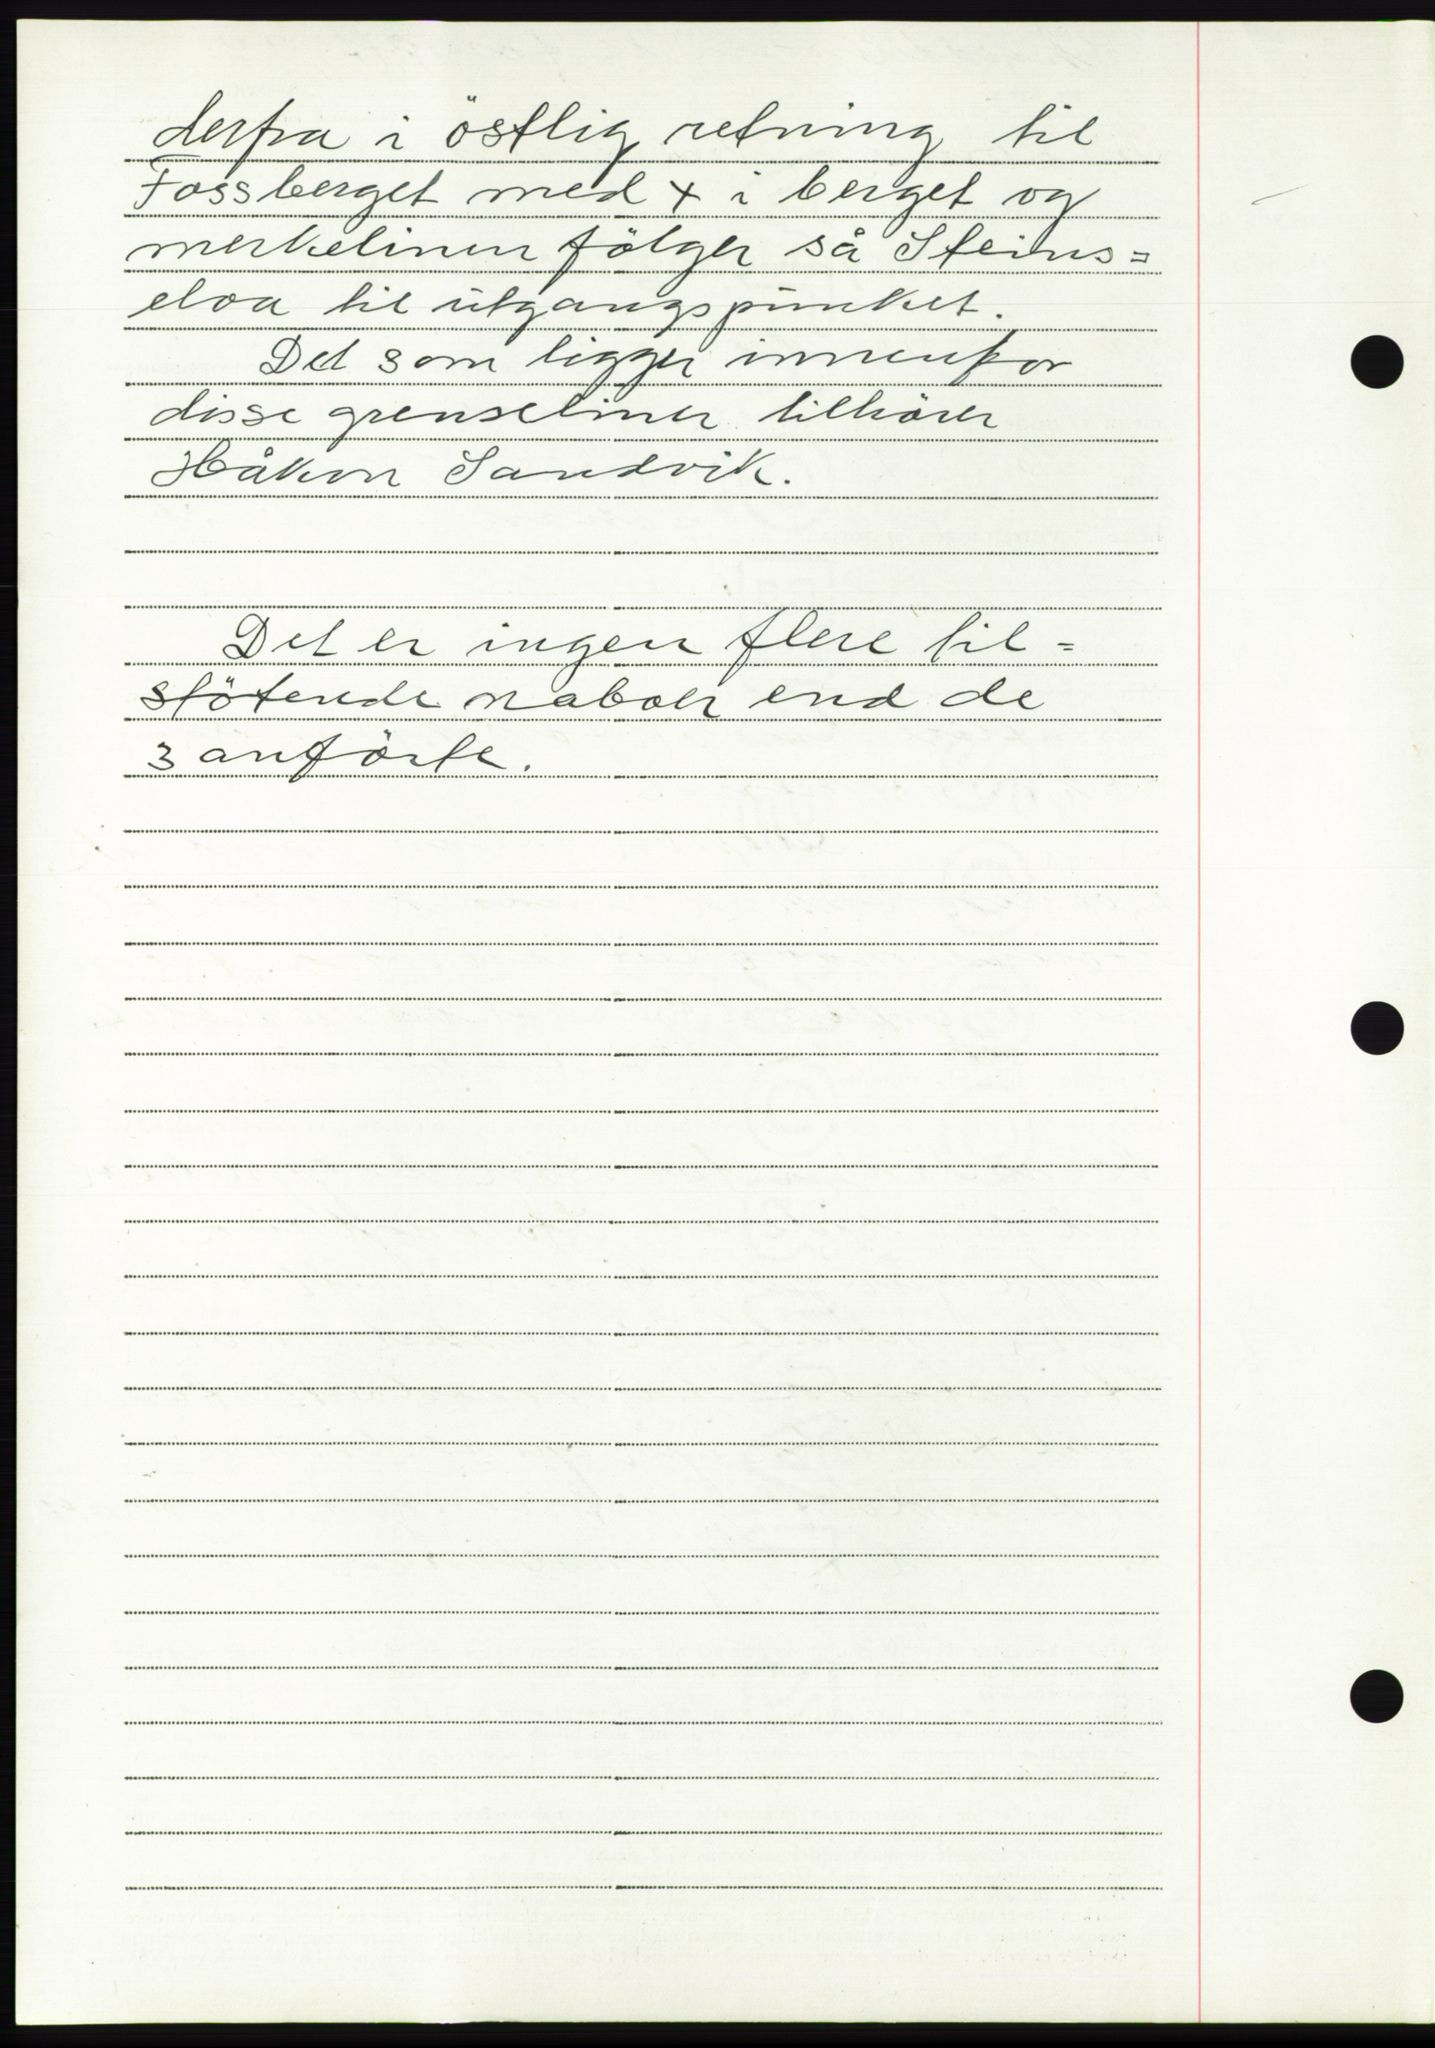 derfra i östlig retning til
Fossberget med x i berget og
merkelinen fölger så Steins=
elva til utgangspunket.
Det som ligger innenfor
disse grenseliner tilhörer
Håkon Sandvik.
Det er ingen flere til=
stötende naboer end de
3 anförte.